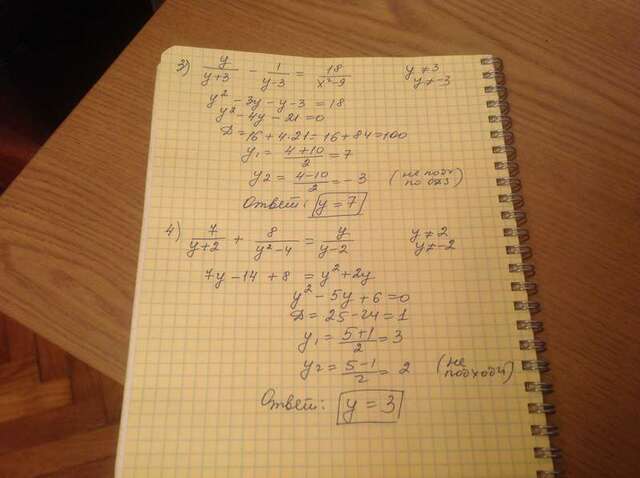 3) y/(y+3) - 1/(y-3) = 18/(x²-9) y≠3
y≠-3
y² - 3y - y - 3 = 18
y² - 4y - 21 = 0
D = 16 + 4·21 = 16 + 84 = 100
y₁ = (4+10)/2 = 7
y₂ = (4-10)/2 = -3 (не подх.
по ОДЗ)
Ответ: y = 7
4) 7/(y+2) + 8/(y²-4) = y/(y-2) y≠2
y≠-2
7y - 14 + 8 = y² + 2y
y² - 5y + 6 = 0
D = 25 - 24 = 1
y₁ = (5+1)/2 = 3
y₂ = (5-1)/2 = 2 (не
подходит)
Ответ: y = 3